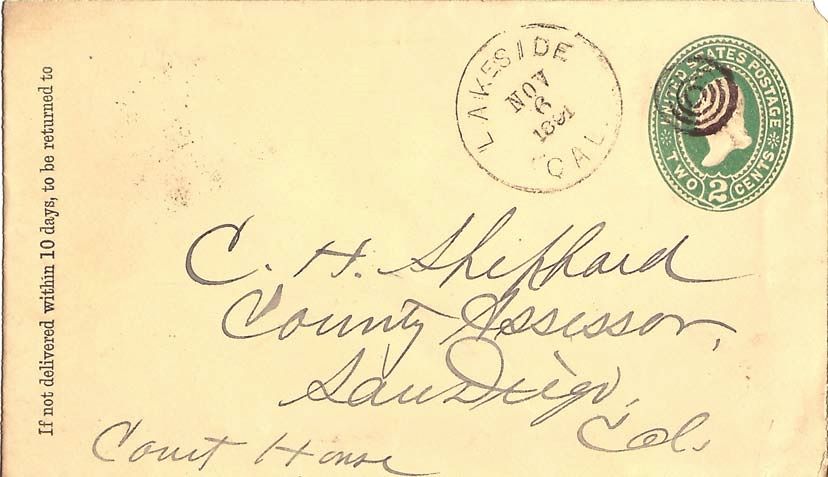 If not delivered within 10 days, to be returned to
LAKESIDE
NOV
6
1891
CAL.
UNITED STATES POSTAGE
TWO 2 CENTS
C. H. Shephard
County Assessor,
San Diego,
Cal.
Court House